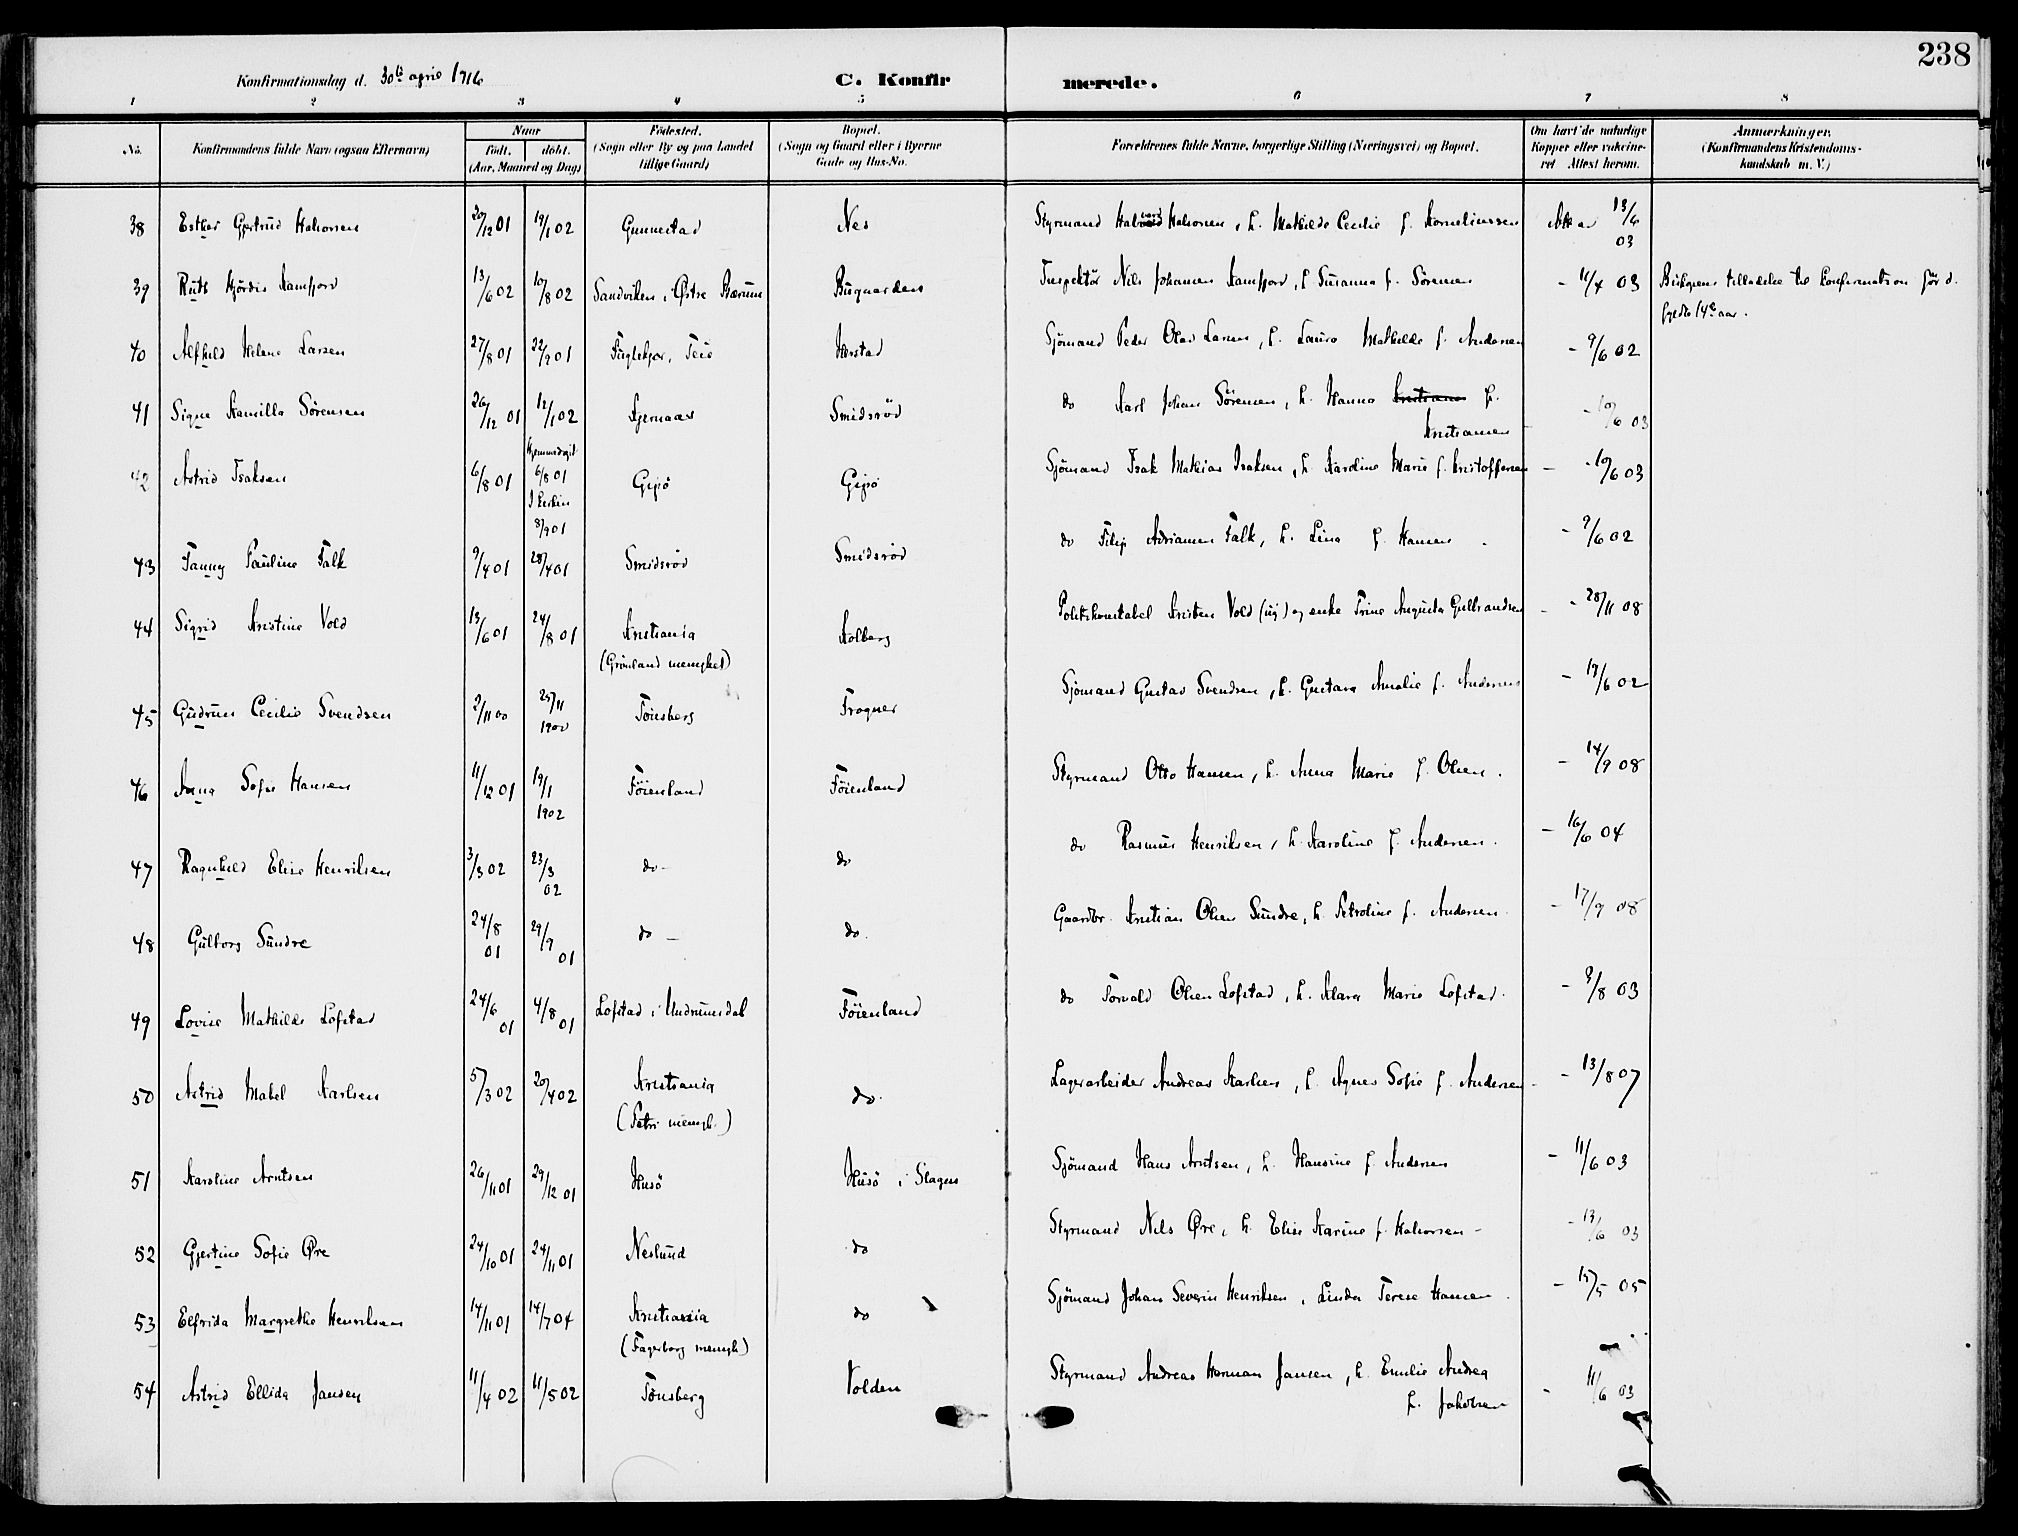 238
Konfirmationsdag d. 30te april 1916
C. Konfirmerede.
1 2 3 4 5 6 7 8
No. Konfirmandens fulde Navn (ogsaa Efternavn) Naar født. døbt. (Aar, Maaned og Dag) Fødested. (Sogn eller By og paa Landet tillige Gaard) Bopæl. (Sogn og Gaard eller i Byerne Gade og Hus-No. Forældrenes fulde Navne, borgerlige Stilling (Næringsvei) og Bopæl. Om havt de naturlige Kopper eller vakcineret Attest herom. Anmærkninger. (Konfirmandens Kristendomskundskab m. V.)
38 Esther Gjertrud Halvorsen 20/12 01 19/1 02 Gunnestad Nes Styrmand Halvard Halvorsen, h. Mathilde Cecilie f. Korneliussen Att av 13/6 03
39 Ruth Hjördis Kamfjord 13/6 02 10/8 02 Sandviken i Østre Bærum Bugaarden Inspektör Nils Johannes Kamfjord, h. Susanna f. Sörensen - 11/4 03 Biskopens tilladelse til konfirmation för d. fyldte 14de aar.
40 Alfhild Helene Larsen 27/8 01 22/9 01 Fuglekjær, Teie Herstad Sjömand Peder Olav Larsen, h. Laura Mathilde f. Andersen - 9/6 02
41 Signe Kamilla Sörensen 26/12 01 12/1 02 Kjernaas Smidsröd do Karl Johan Sörensen, h. Hanna f. Kristiansen - 10/6 03
42 Astrid Isaksen 6/8 01 Hjemmedøpt 6/8 01 I kirken 8/9 01 Gipö Gipö Sjömand Isak Mathias Isaksen, h. Karoline Marie f. Kristoffersen - 10/6 03
43 Fanny Pauline Falk 9/4 01 28/4 01 Smidsröd Smidsröd do Filip Adriansen Falk, h. Lina f. Hansen - 9/6 02
44 Sigrid Kristine Vold 13/6 01 24/8 01 Kristiania (Grönland menighet) Kolberg Politikonstabel Kristen Vold (ug) og enke Trine Augusta Gulbrandsen - 28/11 08
45 Gudrun Cecilie Svendsen 2/11 00 25/11 1900 Tönsberg Frogner Sjömand Gustav Svendsen, h. Gustava Amalie f. Andersen - 19/6 02
46 Anna Sofie Hansen 11/12 01 19/1 1902 Föienland Föienland Styrmand Otto Hansen, h. Anna Marie f. Olsen. - 14/9 08
47 Ragnhild Elise Henriksen 3/3 02 23/3 02 do - do do Rasmus Henriksen, h. Karoline f. Andersen. - 16/6 04
48 Gulborg Sundre 24/8 01 29/9 01 do - do. Gaardbr. Kristian Olsen Sundre, h. Petroline f. Andersen. - 17/9 08
49 Lovise Mathilde Lofstad 24/6 01 4/8 01 Lofstad i Undrumsdal Föienland do Torvald Olsen Lofstad, h. Klara Marie Lofstad. - 3/8 03
50 Astrid Mabel Karlsen 5/3 02 20/4 02 Kristiania (Petri menigh.) do. Lagerarbeider Andreas Karlsen, h. Agnes Sofie f. Andersen - 13/8 07
51 Karoline Arntsen 26/11 01 29/12 01 Husö Husö i Slagen Sjömand Hans Arntsen, h. Hansine f. Andersen - 11/6 03
52 Gjertine Sofie Øre 24/10 01 24/11 01 Neslund do Styrmand Nils Øre, h. Elise Karine f. Halvorsen - - 13/6 03
53 Elfrida Margrethe Henriksen 14/11 01 14/7 04 Kristiania (Fagerborg menigh.) do Sjömand Johan Severin Henriksen, Linda Terese Hansen. - 15/5 05
54 Astrid Ellida Jansen 11/4 02 11/5 02 Tönsberg Volden Styrmand Andreas Herman Jansen, h. Emilie Andrea f. Jakobsen - 11/6 03